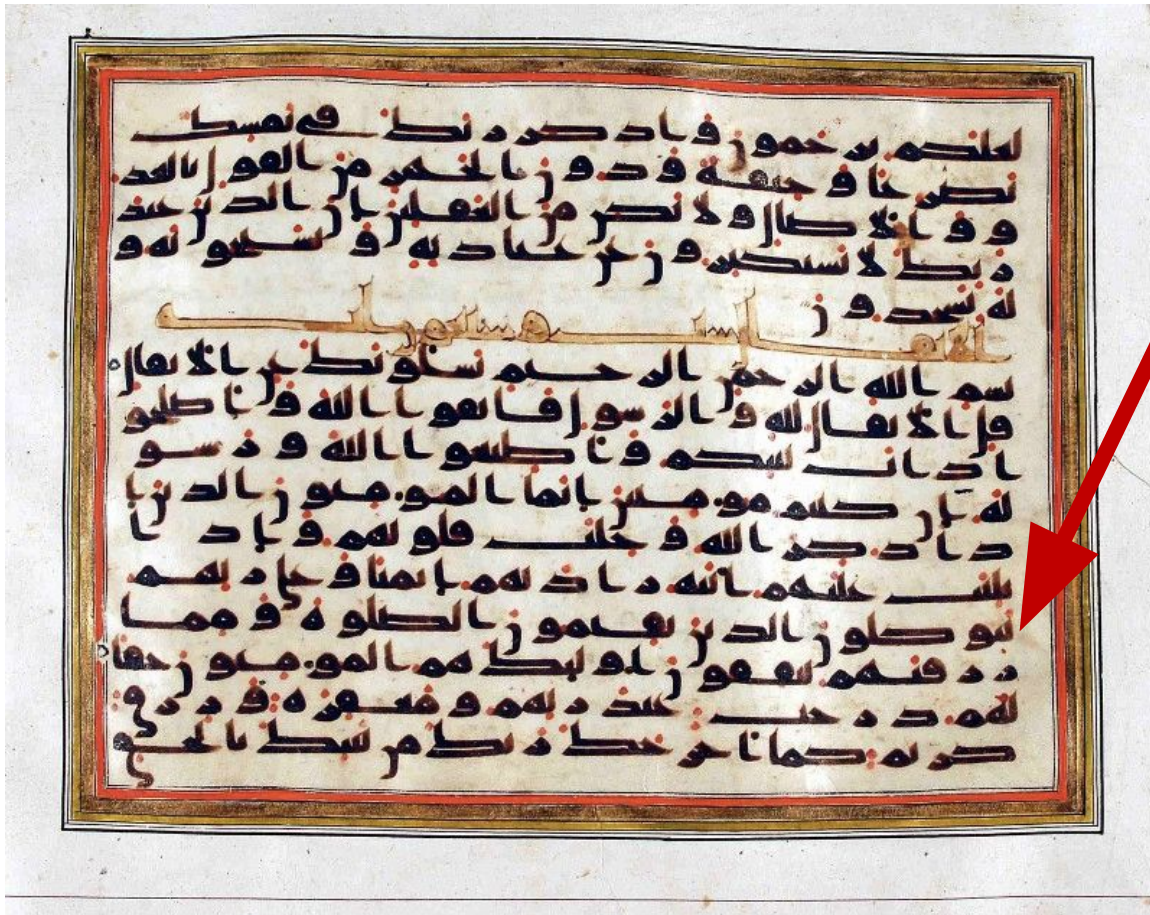 لعلكم ترحمون واذكر ربك في نفسك
تضرعا وخيفة ودون الجهر من القول بالغد
و والاصال ولا تكن من الغفلين ان الذين عند
ربك لا يستكبرون عن عبادته ويسبحونه و
له يسجدون
الانفال
بسم الله الرحمن الرحيم يسلونك عن الانفال
قل الانفال لله والرسول فاتقوا الله واصلحو
ا ذات بينكم واطيعوا الله ورسو
له ان كنتم مومنين انما المومنون الذين ا
ذا ذكر الله وجلت قلوبهم واذا
تليت عليهم ايته زادتهم ايمنا وعلى ربهم
يتوكلون الذين يقيمون الصلوة ومما
رزقنهم ينفقون اوليك هم المومنون حقا
لهم درجت عند ربهم ومغفرة ورزق
كريم كما اخرجك ربك من بيتك بالحق